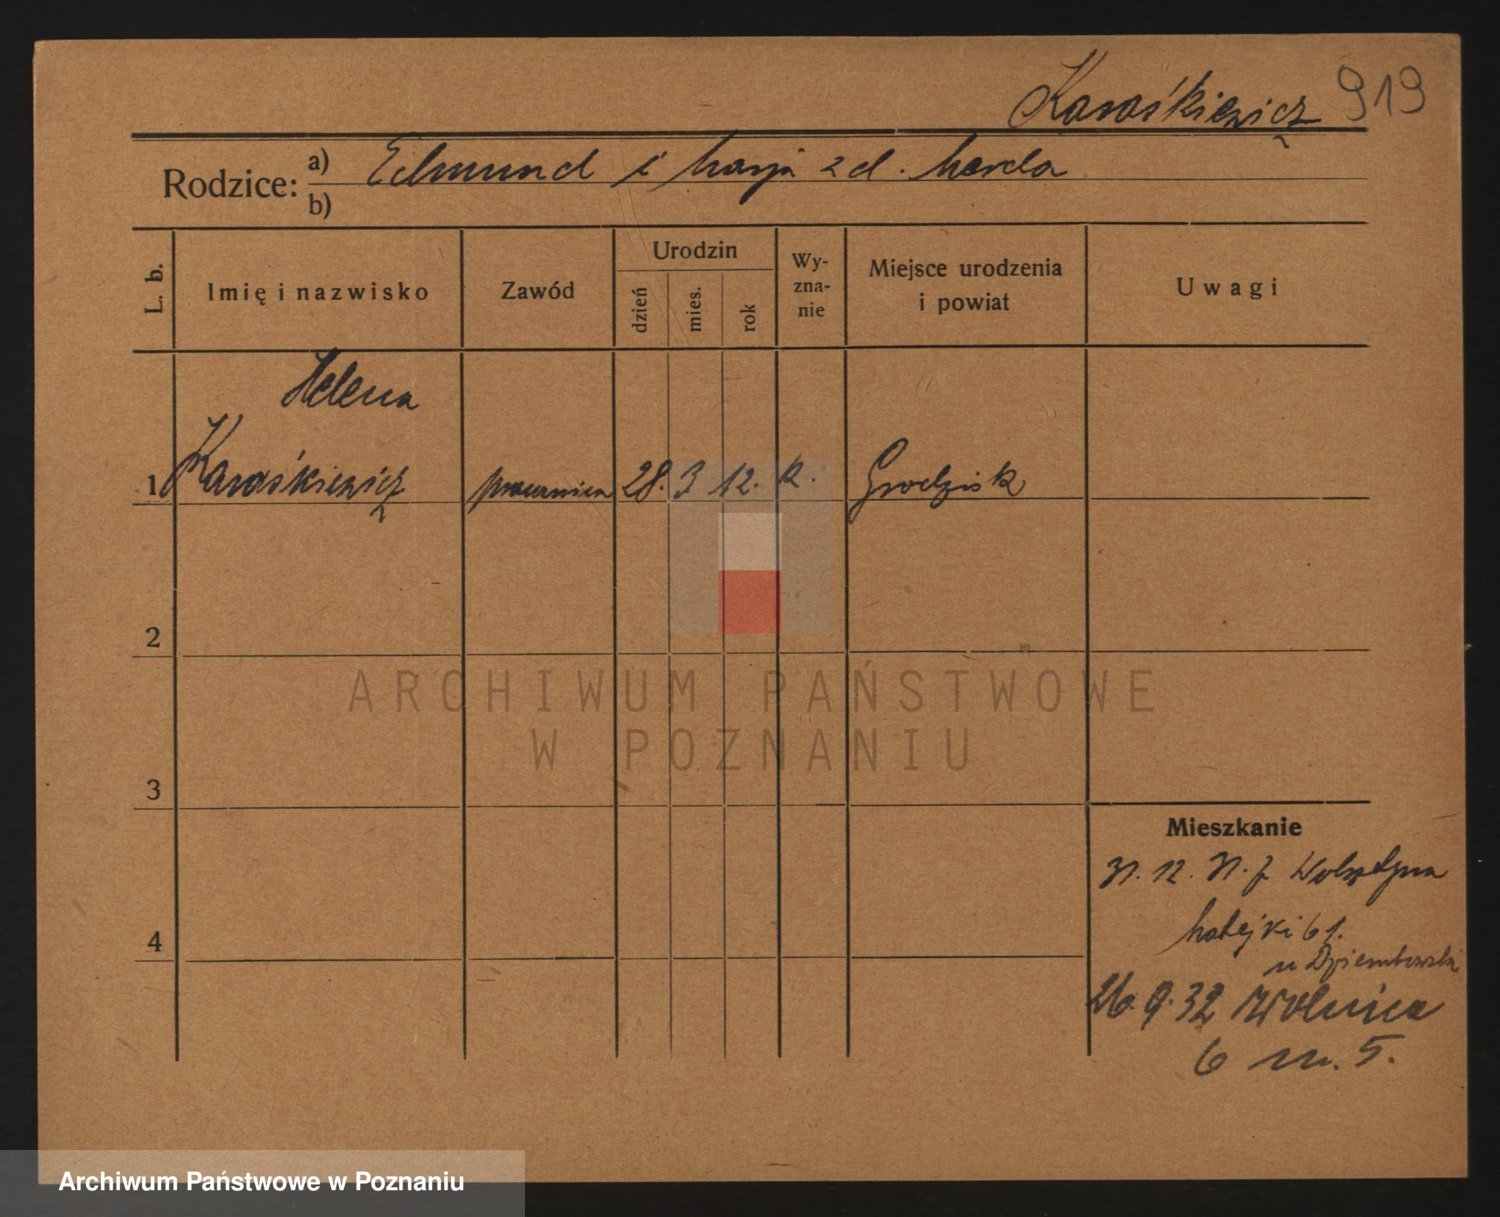 Karaśkiewicz 919
Rodzice: a) Edmund i Marja z d. Marda
b)
L. b.
Imię i nazwisko
Zawód
Urodzin
dzień
mies.
rok
Wy-
zna-
nie
Miejsce urodzenia
i powiat
Uwagi
Helena
1 Karaśkiewicz pracownica 28. 3 12. k. Grodzisk
2
3
4
Mieszkanie
31. 12. 31. z Wolsztyna
Matejki 61.
u Dziembowski
26. 9. 32 Wolnica
6 m. 5.
ARCHIWUM PAŃSTWOWE
W POZNANIU
Archiwum Państwowe w Poznaniu